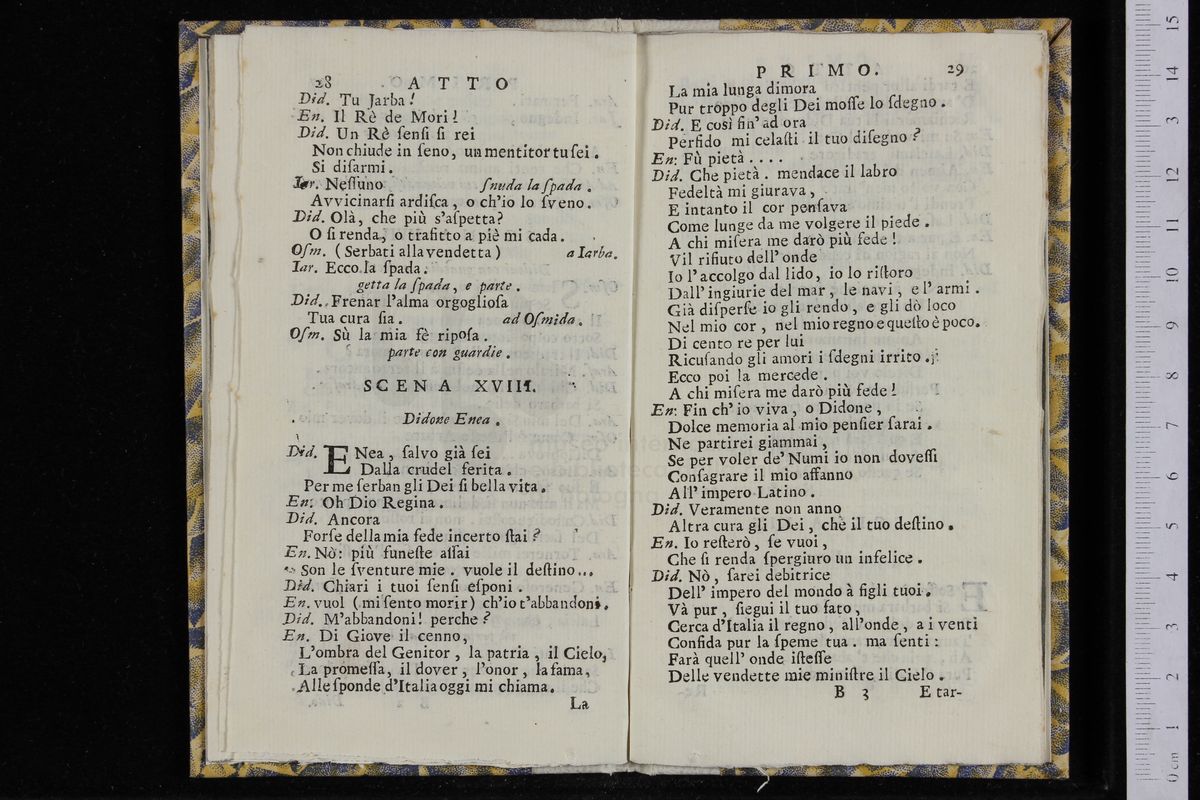 28 OATTO
Did. Tu Jarba!
En. Il Rè de Mori!
Did. Un Rè ſenſi ſi rei
Non chiude in ſeno, un mentitor tu ſei.
Si diſarmi.
Iar. Neſſuno ſnuda la ſpada.
Avvicinarſi ardiſca, o ch'io lo ſveno.
Did. Olà, che più s'aſpetta?
O ſi renda, o trafitto a piè mi cada.
Oſm. (Serbati alla vendetta) a Iarba.
Iar. Ecco la ſpada.
getta la ſpada, e parte.
Did. Frenar l'alma orgoglioſa
Tua cura ſia. ad Oſmida.
Oſm. Sù la mia fè ripoſa.
parte con guardie.
SCENA XVIII.
Didone Enea.
Did. ENea, ſalvo già ſei
Dalla crudel ferita.
Per me ſerban gli Dei ſi bella vita.
En: Oh Dio Regina.
Did. Ancora
Forſe della mia fede incerto ſtai?
En. Nò: più funeſte aſſai
Son le ſventure mie. vuole il deſtino...
Did. Chiari i tuoi ſenſi eſponi.
En. vuol (mi ſento morir) ch'io t'abbandoni.
Did. M'abbandoni! perche?
En. Di Giove il cenno,
L'ombra del Genitor, la patria, il Cielo,
La promeſſa, il dover, l'onor, la fama,
Alle ſponde d'Italia oggi mi chiama.
La
PRIMO. 29
La mia lunga dimora
Pur troppo degli Dei moſſe lo ſdegno.
Did. E così fin' ad ora
Perfido mi celaſti il tuo diſegno?
En: Fù pietà....
Did. Che pietà. mendace il labro
Fedeltà mi giurava,
E intanto il cor penſava
Come lunge da me volgere il piede.
A chi miſera me darò più fede!
Vil rifiuto dell' onde
Io l'accolgo dal lido, io lo riſtoro
Dall' ingiurie del mar, le navi, e l' armi.
Già diſperſe io gli rendo, e gli dò loco
Nel mio cor, nel mio regno e queſto è poco.
Di cento re per lui
Ricuſando gli amori i ſdegni irrito.
Ecco poi la mercede.
A chi miſera me darò più fede!
En: Fin ch' io viva, o Didone,
Dolce memoria al mio penſier ſarai.
Ne partirei giammai,
Se per voler de' Numi io non doveſſi
Conſagrare il mio affanno
All' impero Latino.
Did. Veramente non anno
Altra cura gli Dei, chè il tuo deſtino.
En. Io reſterò, ſe vuoi,
Che ſi renda ſpergiuro un infelice.
Did. Nò, ſarei debitrice
Dell' impero del mondo à figli tuoi.
Và pur, ſiegui il tuo fato,
Cerca d'Italia il regno, all'onde, a i venti
Confida pur la ſpeme tua. ma ſenti:
Farà quell' onde iſteſſe
Delle vendette mie miniſtre il Cielo.
B 3 E tar-
15
14
13
12
11
10
9
8
7
6
5
4
3
2
1
0 cm